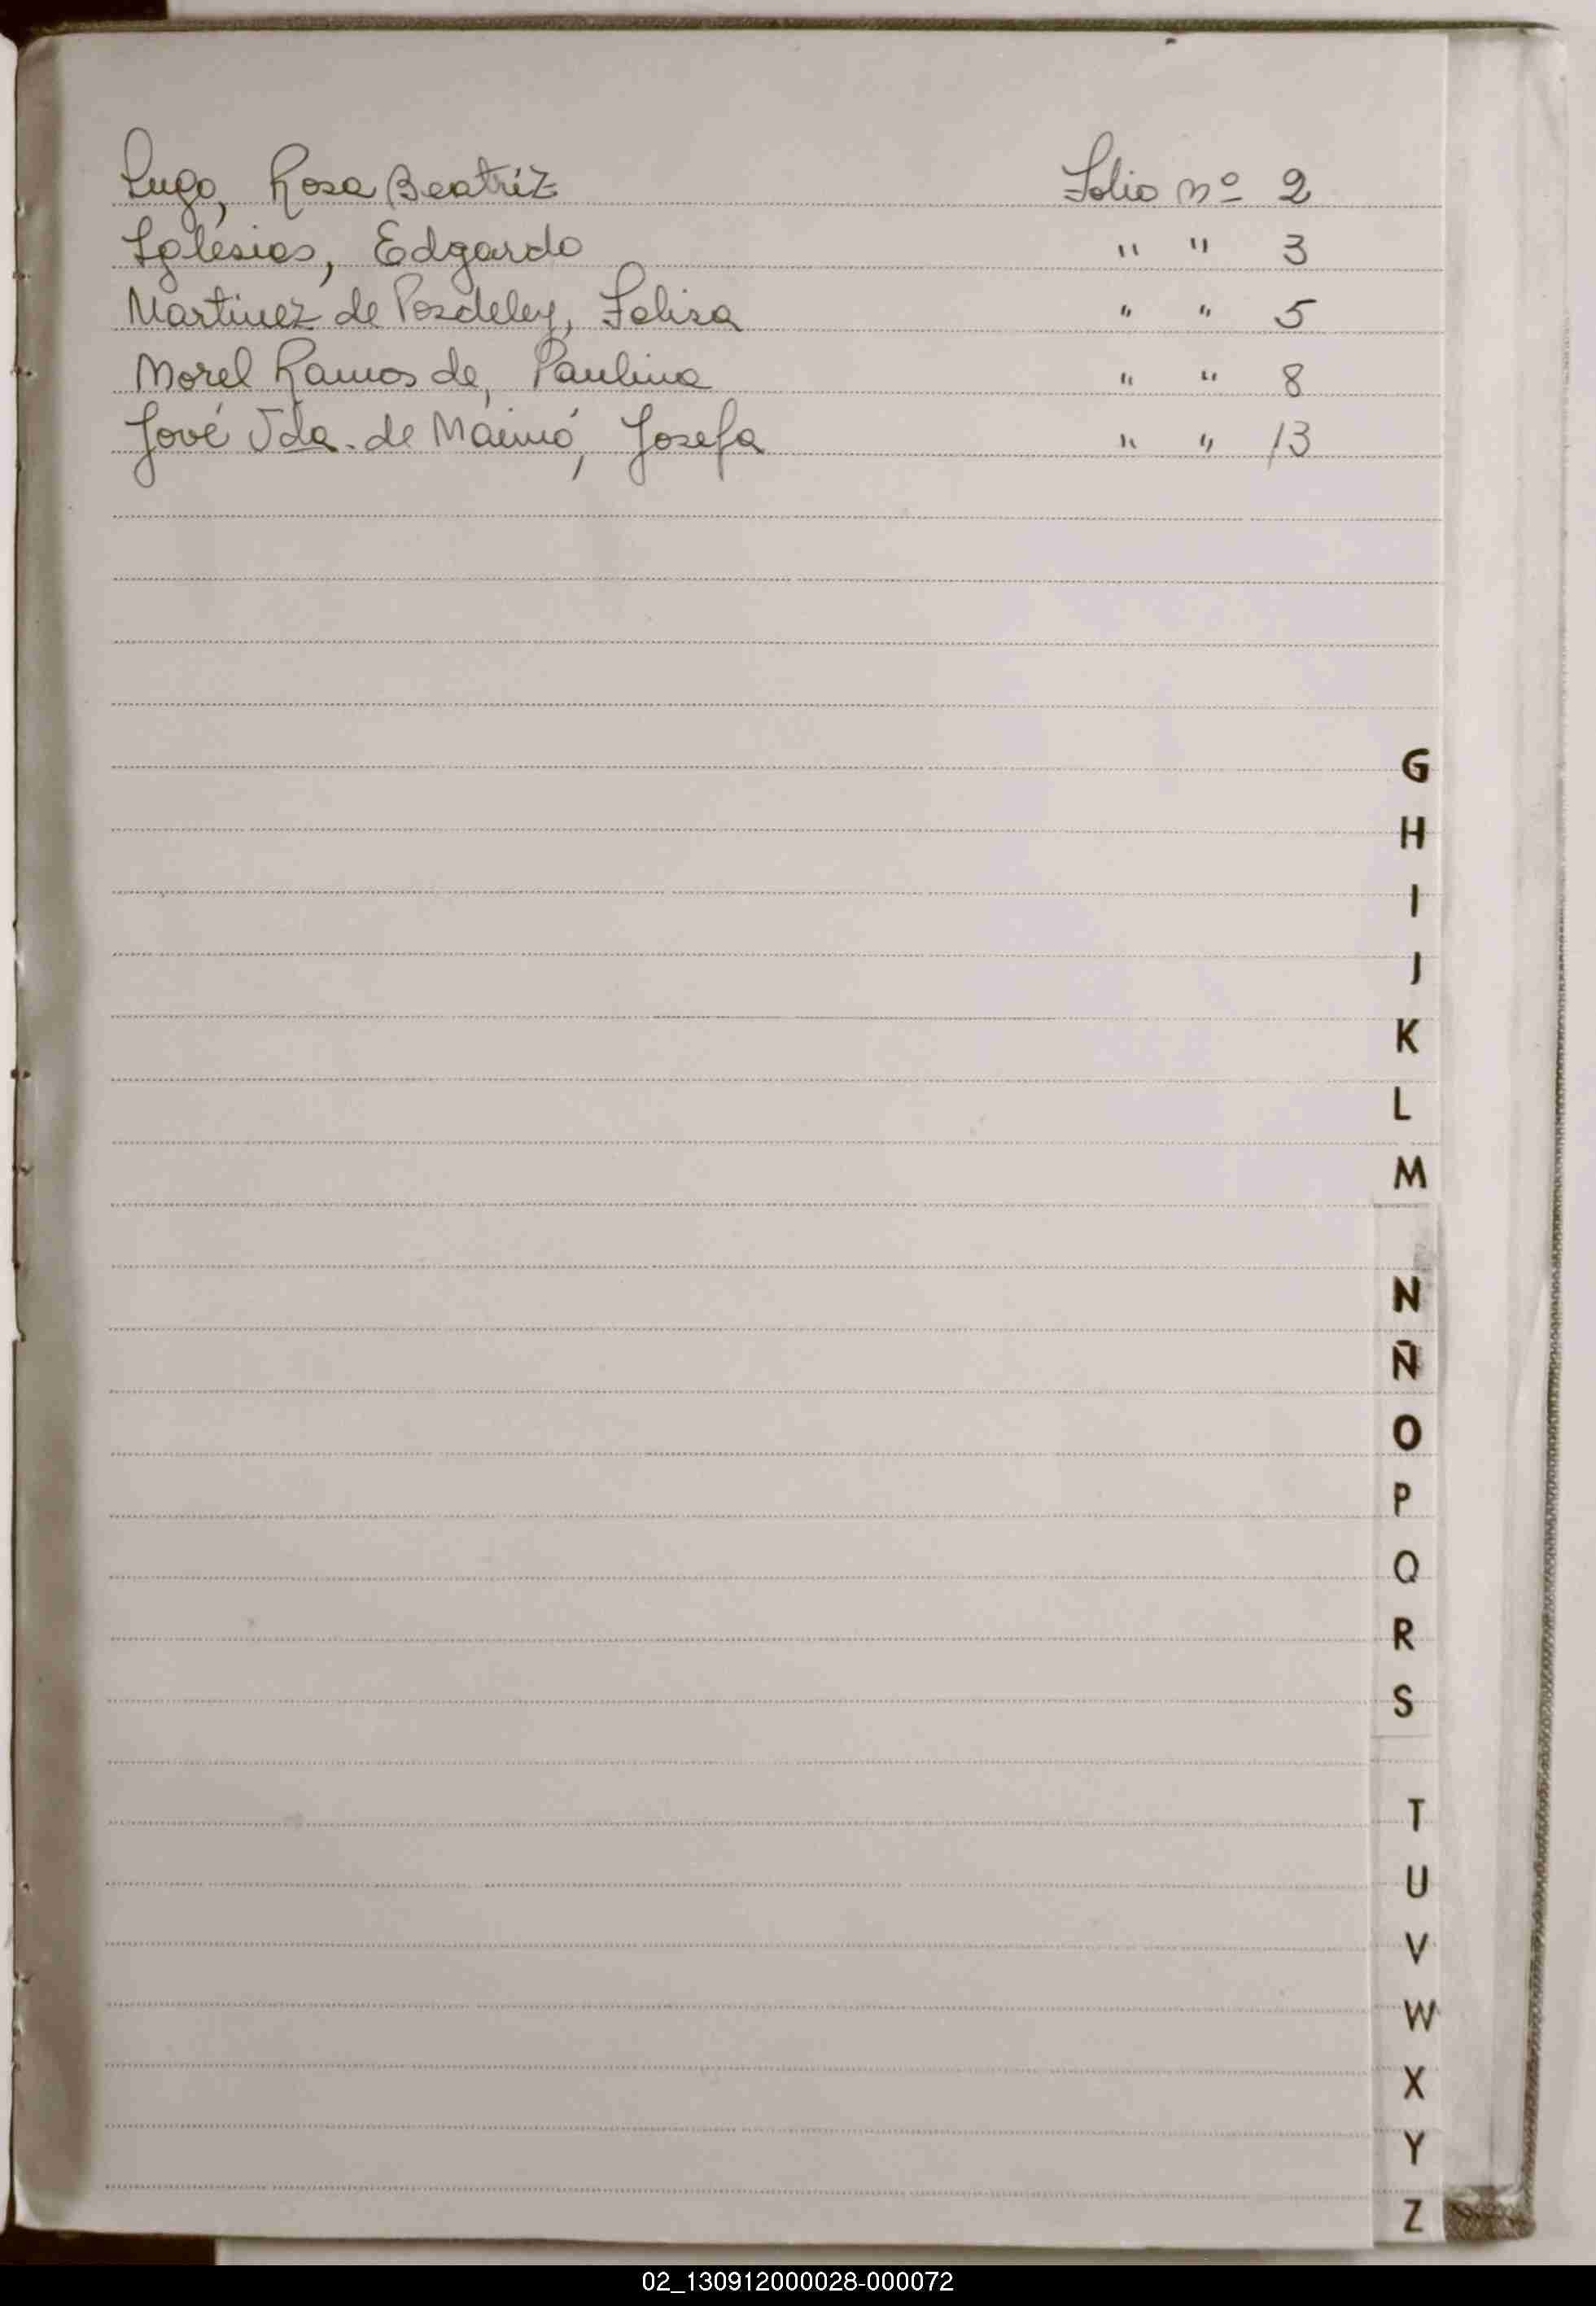 Lugo, Rosa Beatriz Folio nº 2
Iglesias, Edgardo " " 3
Martinez de Posdeley, Felisa " " 5
Morel Ramos de, Paulina " " 8
Jové Vda. de Maimó, Josefa " " 13
G
H
I
J
K
L
M
N
Ñ
O
P
Q
R
S
T
U
V
W
X
Y
Z
02_130912000028-000072